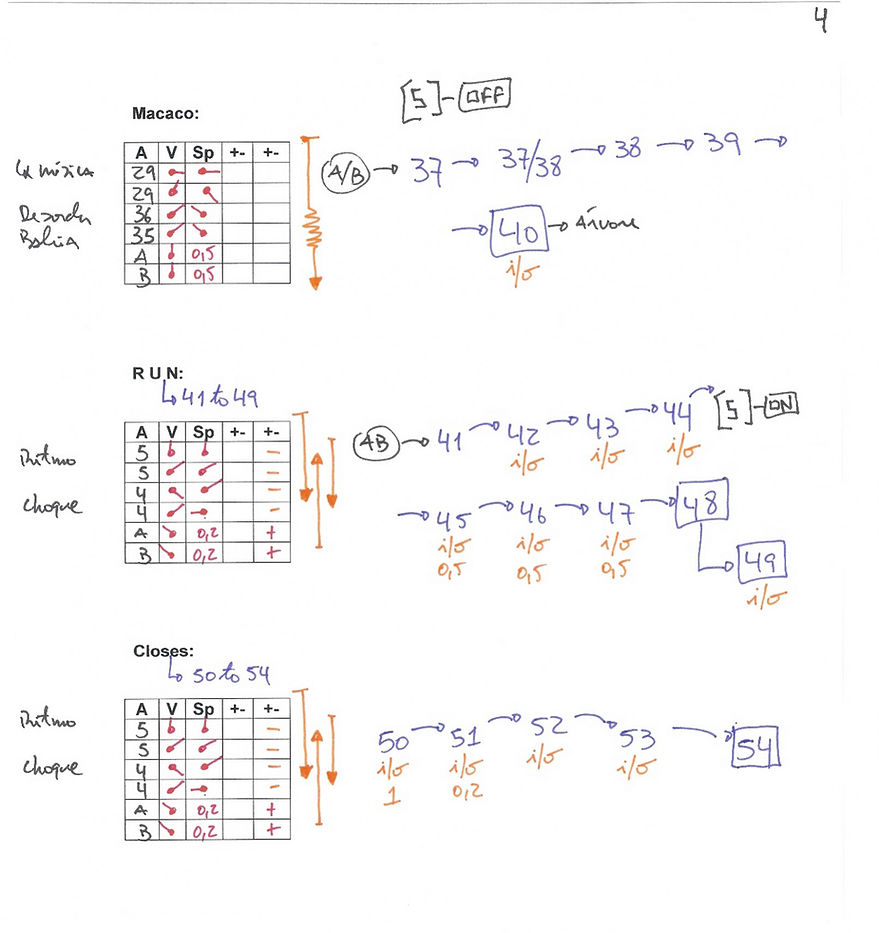 4
[5]-OFF
Macaco:
A V Sp +- +-
29
29
36
35
A 0,5
B 0,5
A/B → 37 → 37/38 → 38 → 39 →
→ 40 → Árvore
i/o
RUN:
↳ 41 to 49
Ritmo
Choque
A V Sp +- +-
5 -
5 -
4 -
4 -
A 0,2 +
B 0,2 +
AB → 41 → 42 → 43 → 44 → [5]-ON
i/o i/o i/o
→ 45 → 46 → 47 → 48
i/o i/o i/o
0,5 0,5 0,5
49
i/o
Closes:
↳ 50 to 54
Ritmo
Choque
A V Sp +- +-
5 -
5 -
4 -
4 -
A 0,2 +
B 0,2 +
50 → 51 → 52 → 53 → 54
i/o i/o i/o i/o
1 0,2